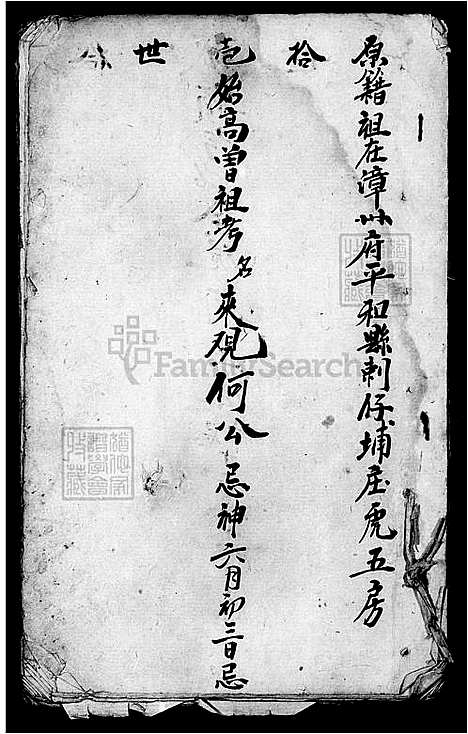 原籍祖在漳州府平和縣刺仔埔庄虎五房
拾壱世
始高曾祖考名來硯何公忌神六月初三日忌
FamilySearch